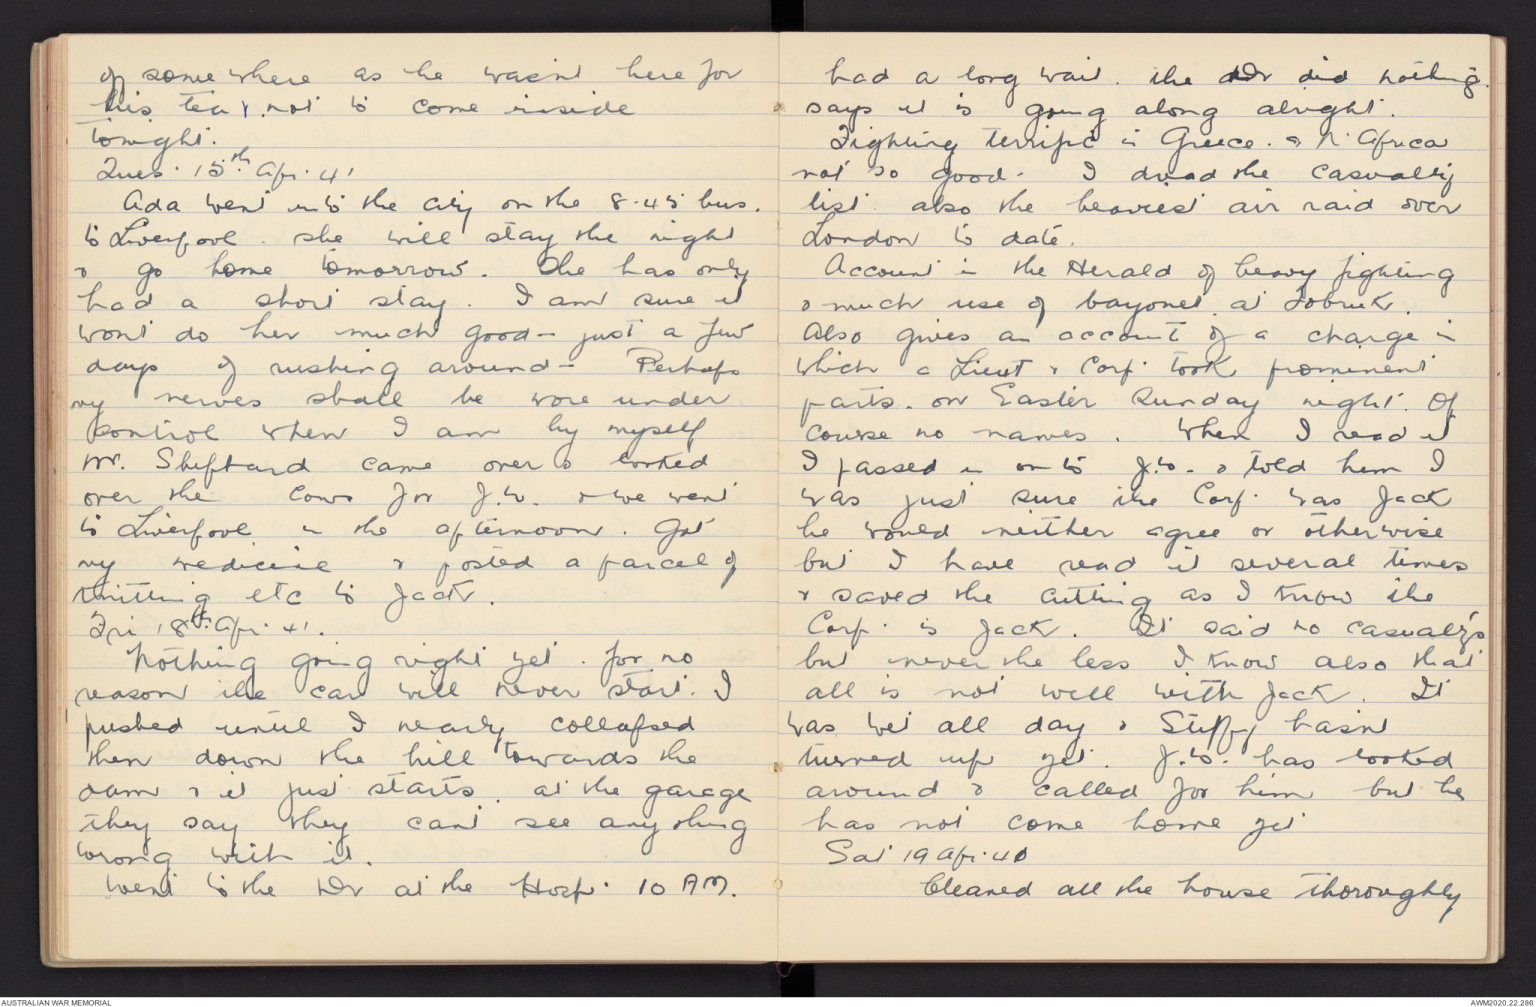 of some where as he wasn't here for
his tea, not to come inside
tonight.
Tues. 15th Apr. 41
Ada went into the city on the 8.45 bus.
to Liverpool. she will stay the night
& go home tomorrow. She has only
had a short stay. I am sure it
wont do her much good - just a few
days of rushing around - Perhaps
my nerves shall be more under
control when I am by myself
Mr. Sheppard came over & looked
over the cows for J.W. & we went
to Liverpool in the afternoon. Got
my medicine & posted a parcel of
knitting etc to Jack.
Fri 18th Apr. 41.
Nothing going right yet. for no
reason the car will never start. I
pushed until I nearly collapsed
then down the hill towards the
dam & it just starts. at the garage
they say they cant see anything
wrong with it.
Went to the Dr at the Hosp. 10 AM.
had a long wait. the Dr did nothing.
says it is going along alright.
Fighting terrific in Greece. & N. Africa
not so good. I dread the casualty
list. also the heaviest air raid over
London to date.
Account in the Herald of heavy fighting
& much use of bayonet at Tobruk.
Also gives an account of a charge in
which a Lieut & Corp. took prominent
parts. on Easter Sunday night. Of
course no names. When I read it
I passed it on to J.W. & told him I
was just sure the Corp. was Jack
he would neither agree or otherwise
but I have read it several times
& saved the cutting as I know the
Corp. is Jack. It said no casualty's
but never the less I know also that
all is not well with Jack. It
was wet all day & Stiffy hasn't
turned up yet. J.W. has looked
around & called for him but he
has not come home yet
Sat 19 Apr. 41
Cleaned all the house thoroughly
AUSTRALIAN WAR MEMORIAL
AWM2020.22.286